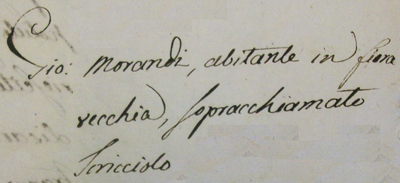 Gio: Morandi, abitante in fiera
vecchia, sopracchiamato
Scricciolo